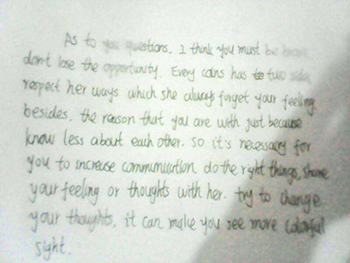 As to you questions. I think you must be brave
don't lose the opportunity. Every coins has to two sides,
respect her ways which she always forget your feeling
besides. the reason that you are with just because
know less about each other. so it's necessary for
you to increase communication. do the right things, share
your feeling or thoughts with her. try to change
your thoughts. it can make you see more colorful
sight.